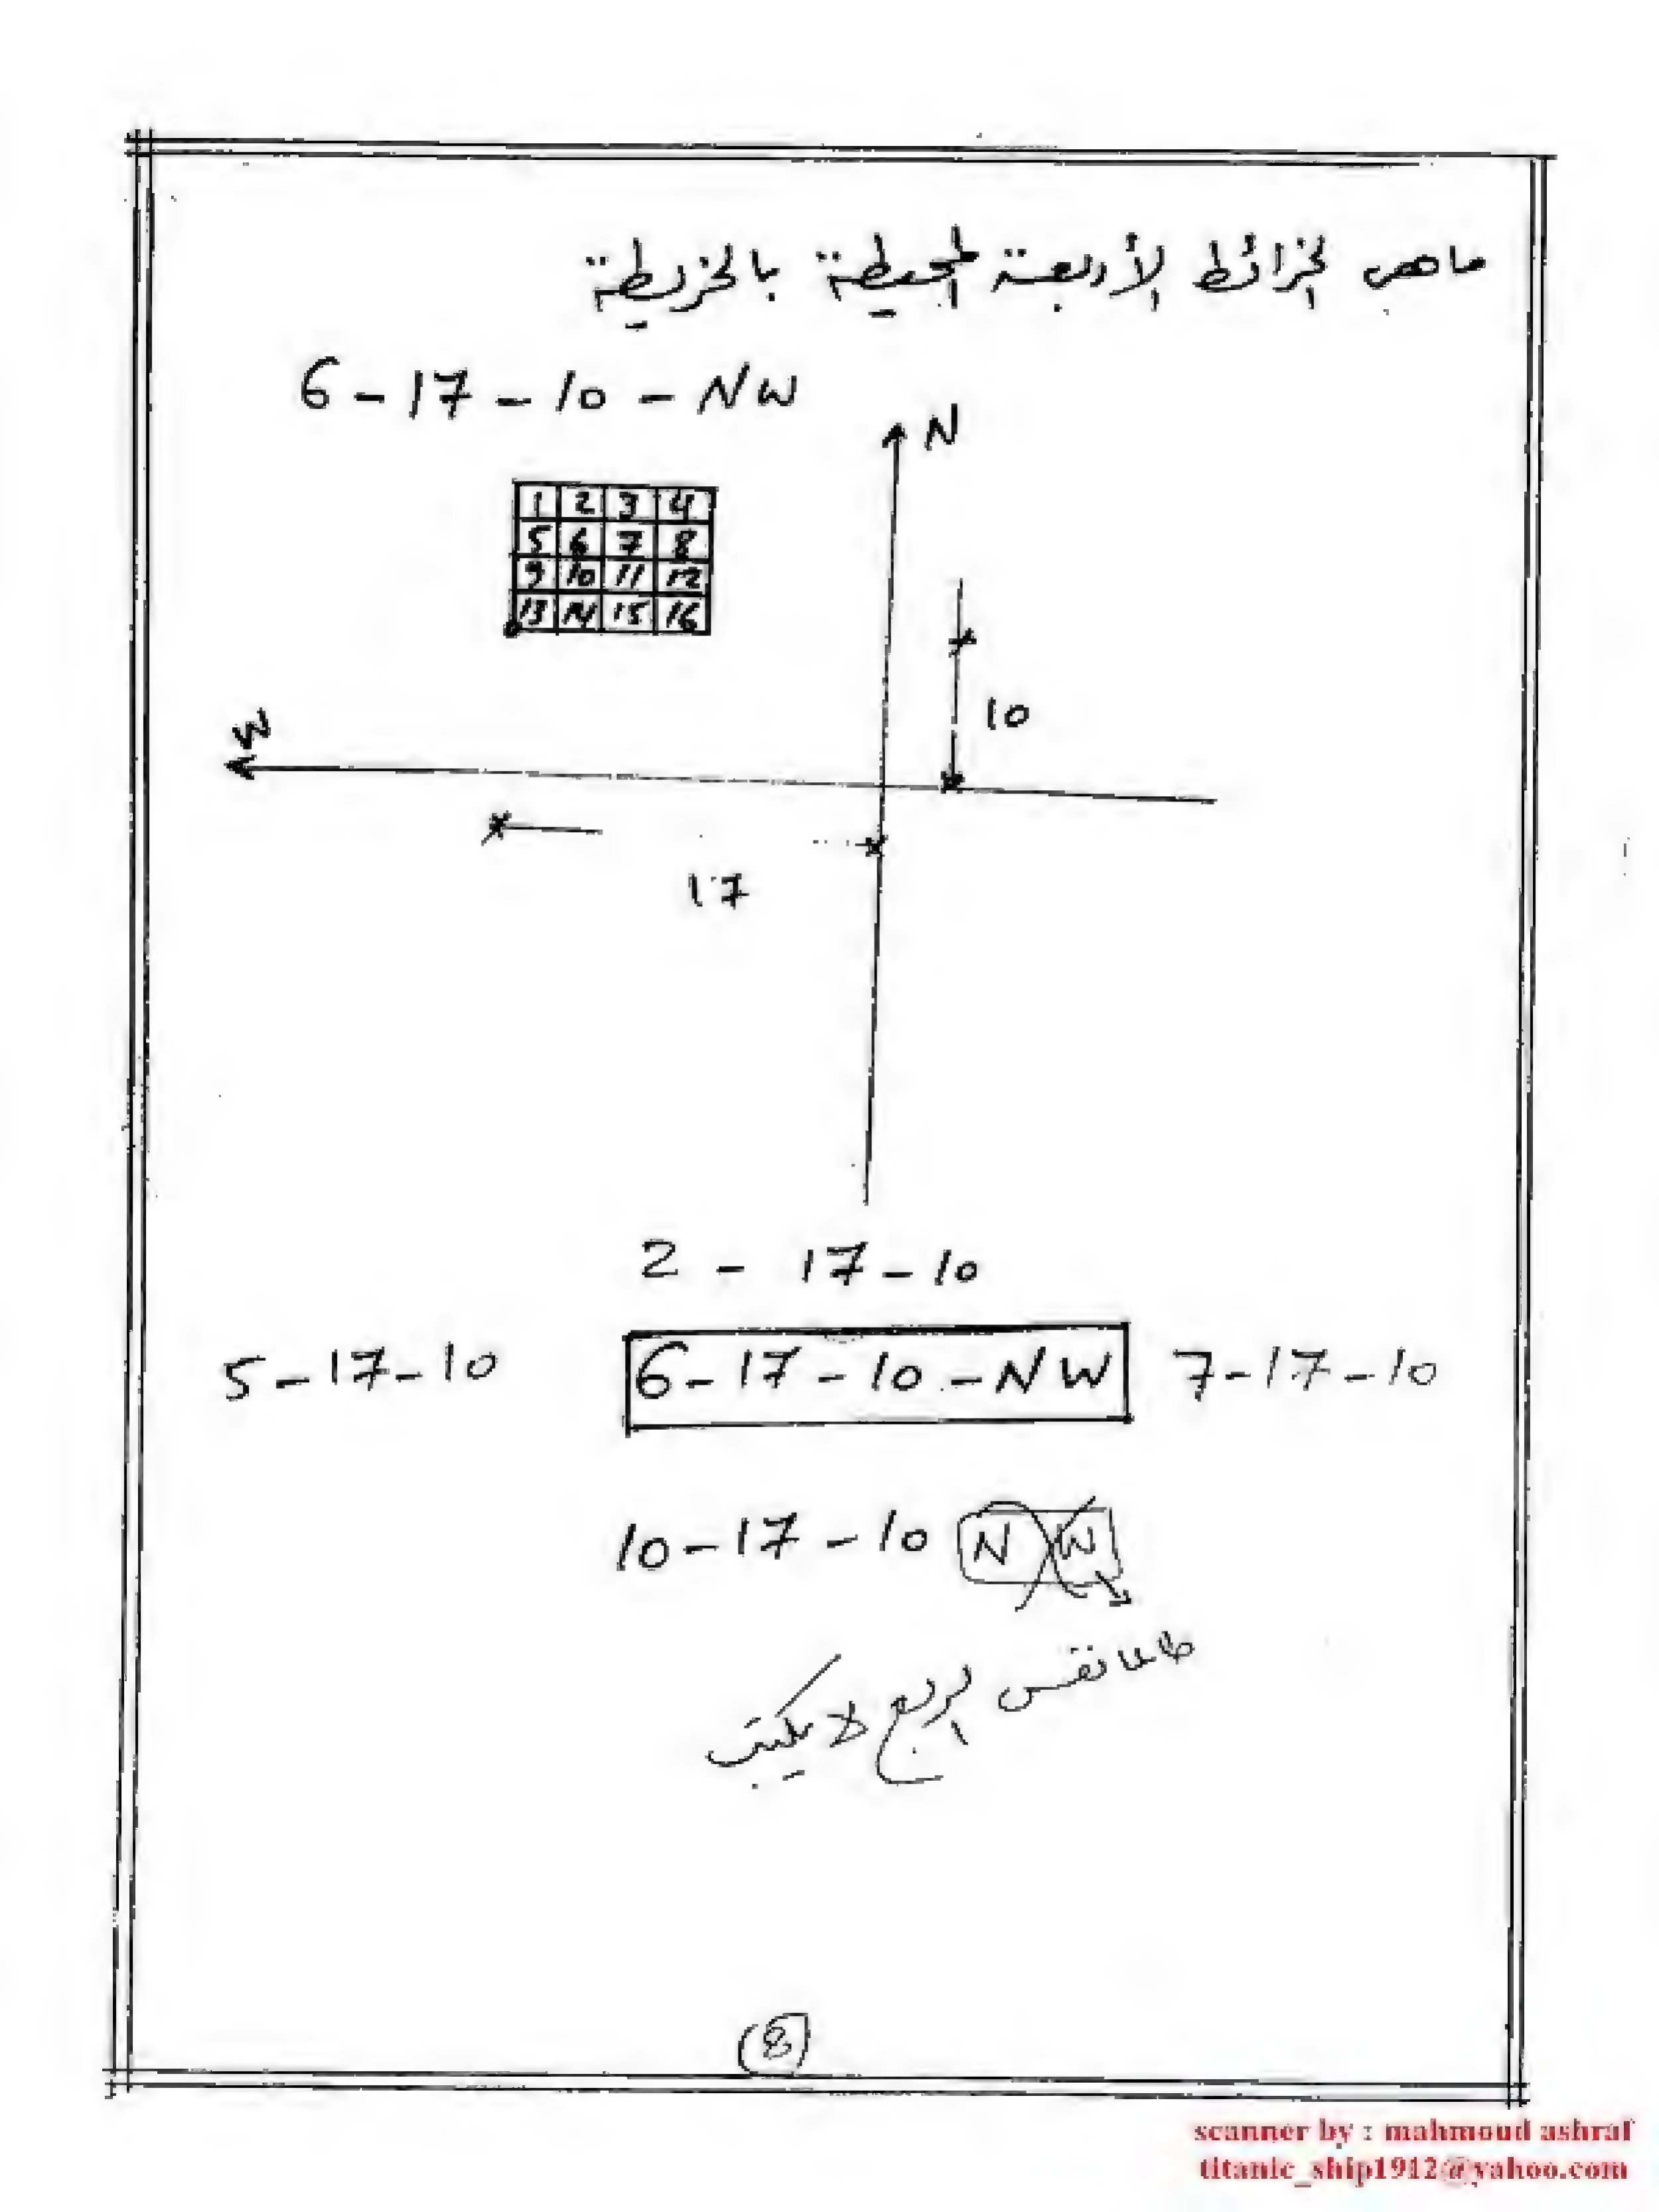 ما هى الخرائط الأربعة المحيطة بالخريطة
6 - 17 - 10 - NW
N
1 2 3 4
5 6 7 8
9 10 11 12
13 14 15 16
10
W
17
2 - 17 - 10
5 - 17 - 10 6 - 17 - 10 - NW 7 - 17 - 10
10 - 17 - 10 NW
طالما نفس الربع لا يكتب
8
scanner by : mahmoud ashraf
titanic_ship1912@yahoo.com